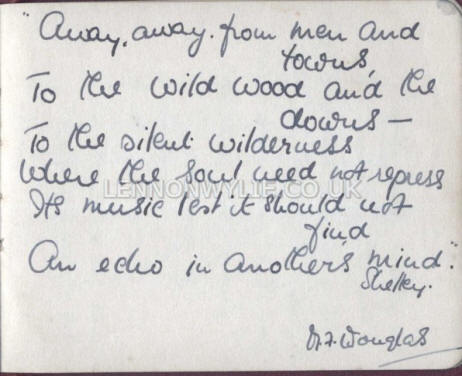 "Away, away. from men and
towns,
To the wild wood and the
downs —
To the silent wilderness
Where the soul need not repress
Its music lest it should not
find
An echo in another's mind."
Shelley.
LENNONWYLIE.CO.UK
M.F. Douglas